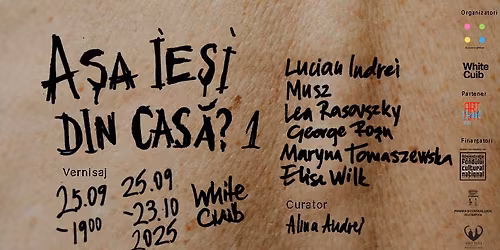 AȘA IEȘI
DIN CASĂ? 1
Vernisaj
25.09
-19⁰⁰
25.09
-23.10
2025
White
Cuib
Lucian Indrei
Musz
Lea Rasovszky
George Roșu
Maryna Tomaszewska
Elisa Wilk
Curator
Alina Andrei
Organizatori
White
Cuib
Partener
ART
Finanțatori
Fondul
cultural
național